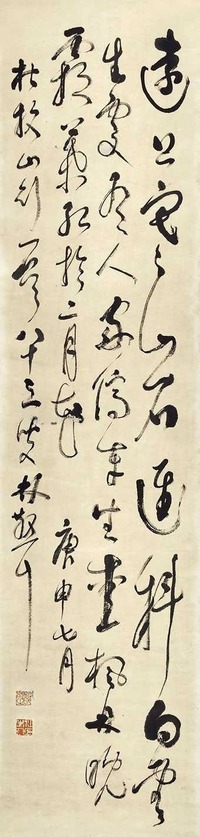 遠上寒山石逕斜白雲
生處有人家停車坐愛楓林晚
霜葉紅於二月花 庚申七月
杜牧山行 八十三叟林散耳